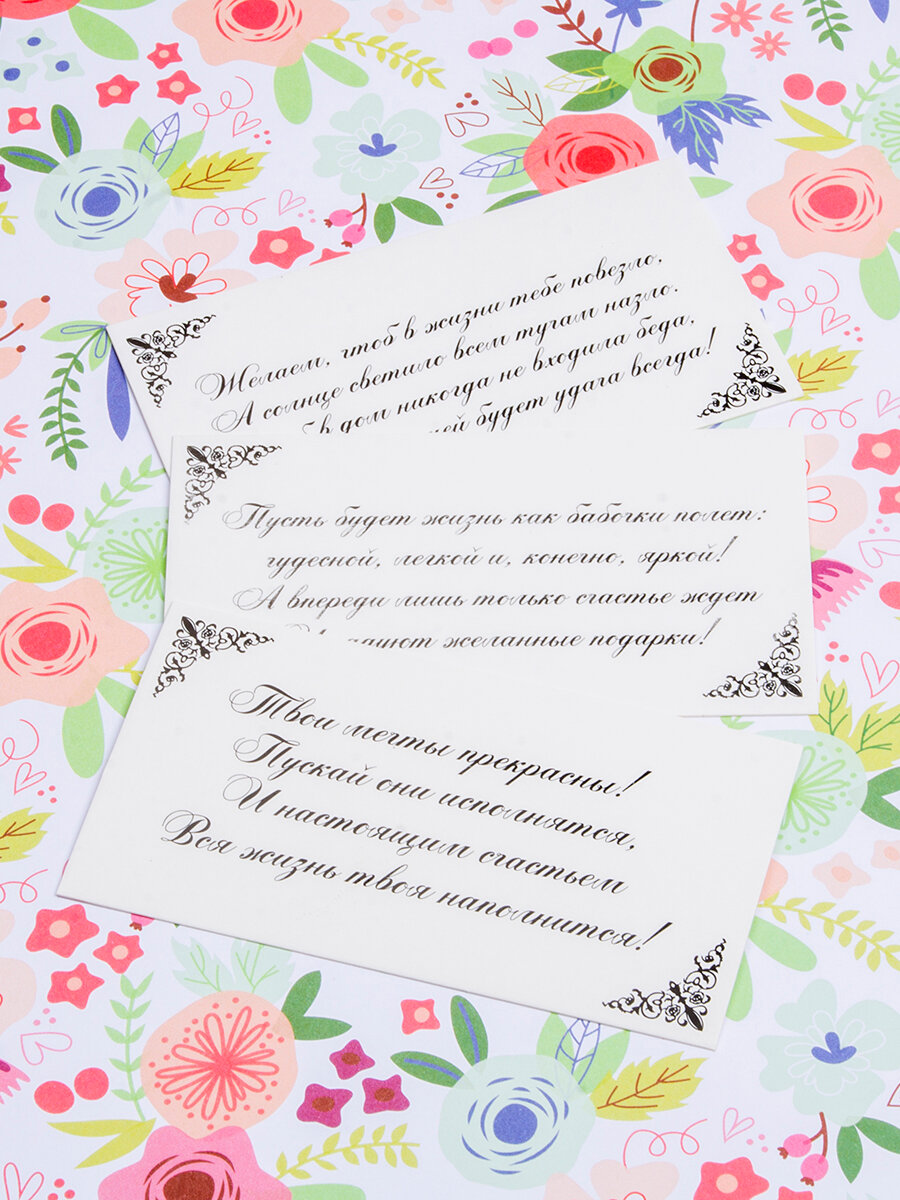 Желаем, чтоб в жизни тебе повезло,
А солнце светило всем тучам назло.
в дом никогда не входила беда,
будет удача всегда!
Пусть будет жизнь как бабочки полет:
чудесной, легкой и, конечно, яркой!
А впереди лишь только счастье ждет
желанные подарки!
Твои мечты прекрасны!
Пускай они исполнятся,
И настоящим счастьем
Вся жизнь твоя наполнится!